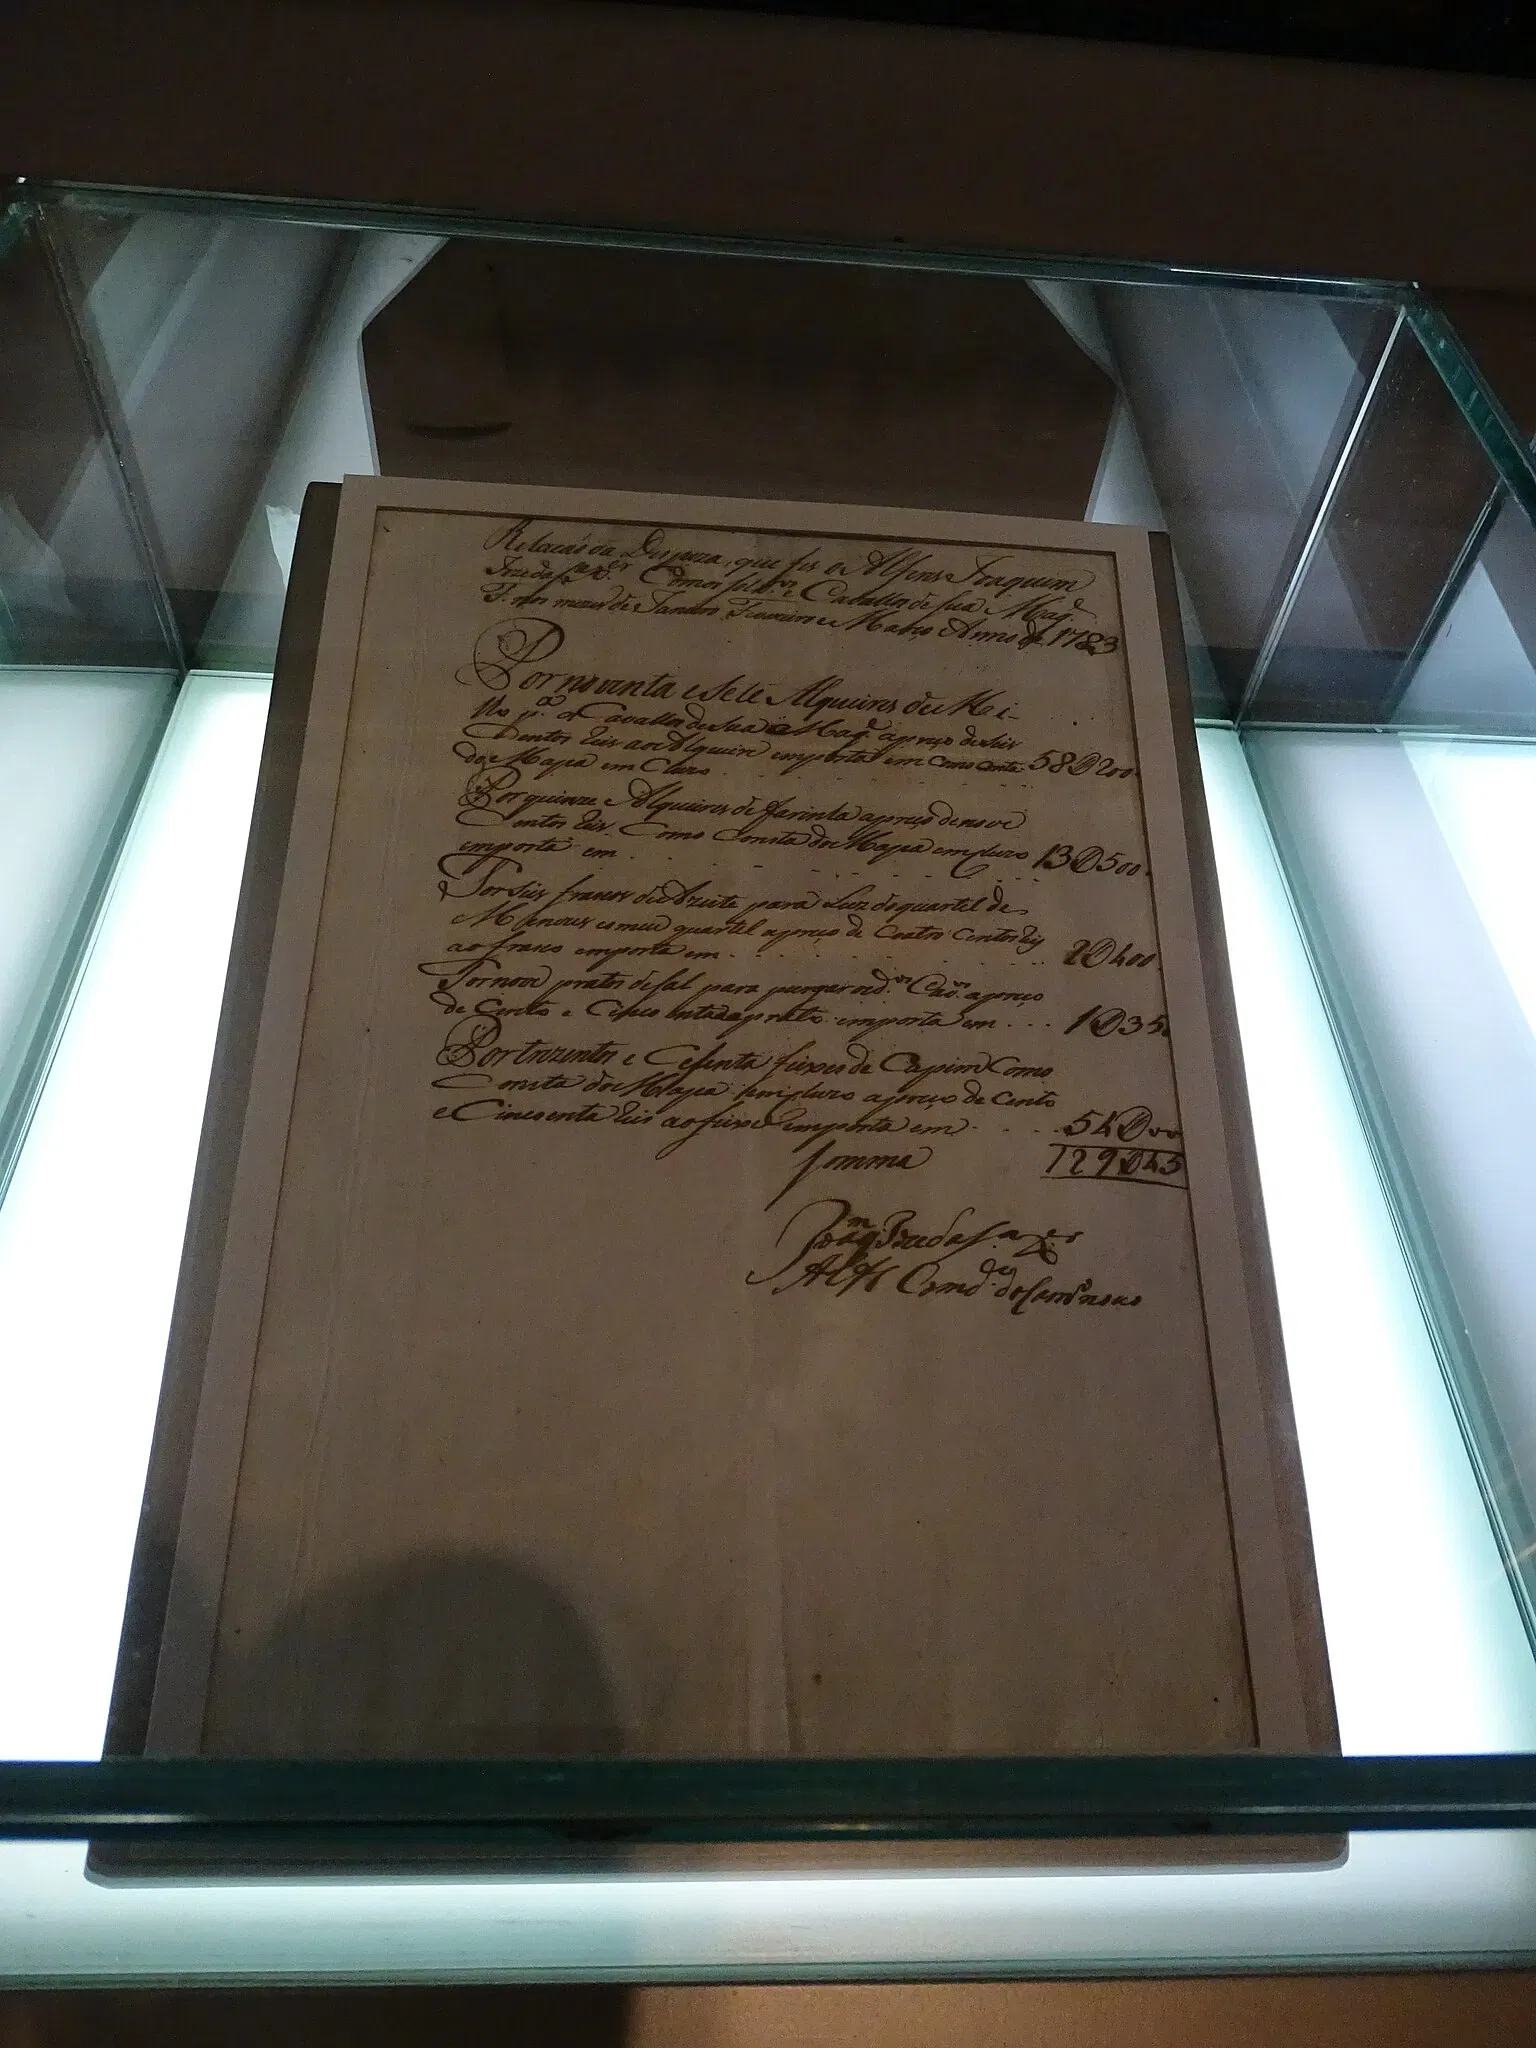 Relacaõ da Despeza, que fes o Alferes Joaquim
Joze da S.ª X.er Com os sold.os e Cavallos de sua Mag.e
F. nos mezes de Janeiro Fevereiro e Março Anno de 1783
Por noventa e sete Alqueires de Mi-
lho p.ª os Cavallos de sua Mag.e a preço de seis
Centos reis ao Alqueire emporta em como Consta 58D200
do Mapa em Cluzo
Por quinze Alqueires de farinha a preço de nove
Centos reis Como Consta do Mapa em cluzo 13D500
emporta em
Por seis frascos de Azeite para Luz do quartel de
Menezes e o meu quartel a preço de Coatro Centos reis
ao frasco emporta em 2D400
Por nove pratos de sal para purgar os d.os Cav.os a preço
de Cento e Cinco enta o prato emporta em 1D35
Por trezentos e Cesenta feixes de Capim Como
Consta do Mapa em cluzo a preço de Cento
e Cincoenta reis ao feixe emporta em 54D00
somma 129D45
Joaq.m Joze da S.ª X.er
Alf.s Comd.e do Cam.º novo